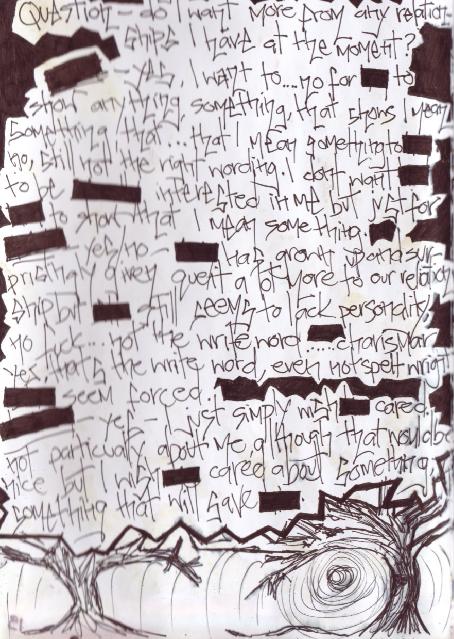 Question - do I want more from any relation-
ships I have at the moment?
- yes, I want to... no for to
show anything, something, that shows I mean
something that... that I mean something to
no, still not the right wording. I dont want
to be interested in me but just for
to show that I mean something.
- yes/no - has grown up and sur-
prisingly given quent a lot more to our relation
ship but still seems to lack personality,
no fuck... not the write word ...... charismar
yes thats the write word, even not spelt wright
seem forced.
- yes - I just simply wish cared.
not particualy about me, although that would be
nice but I wish cared about something,
something that will save